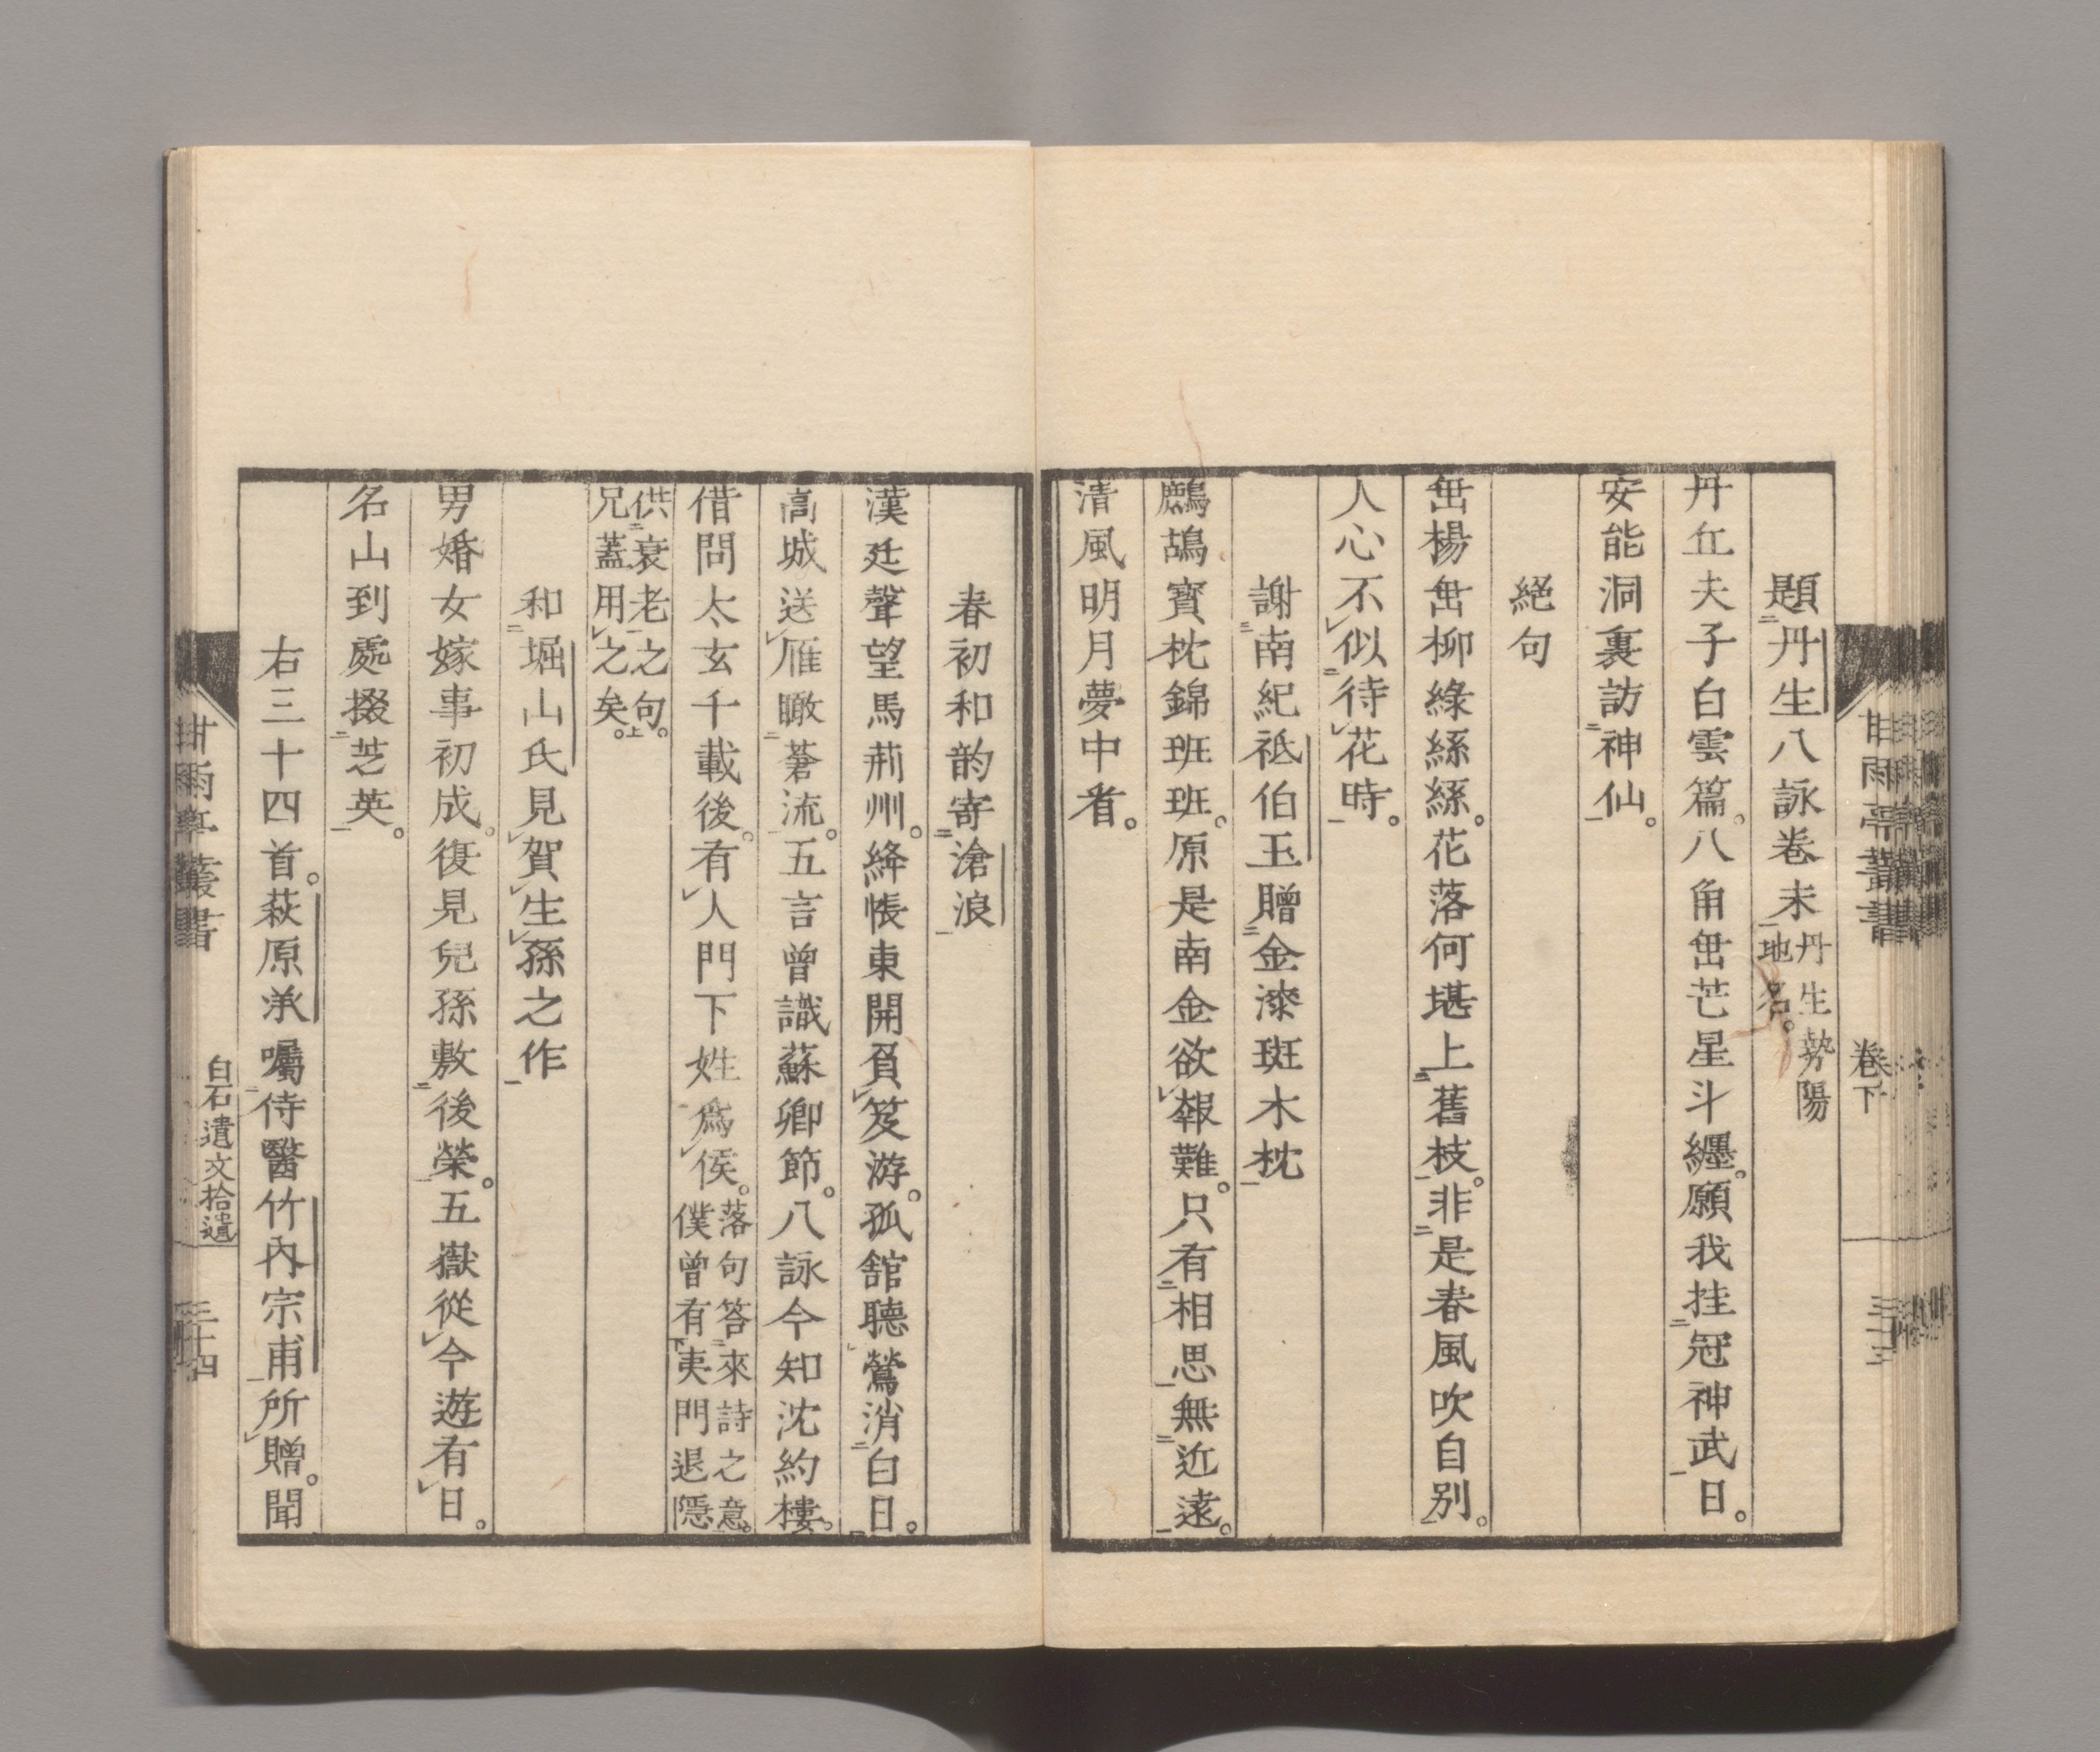 題丹生八詠卷末 丹生勢陽地名。
丹丘夫子白雲篇。八角𠂹芒星斗纏。願我挂冠神武日。
安能洞裏訪神仙。
絕句
𠂹楊𠂹柳綠絲絲。花落何堪上舊枝。非是春風吹自別。
人心不似待花時。
謝南紀祗伯玉贈金漆斑木枕
鷓鴣寶枕錦班班。原是南金欲報難。只有相思無近遠。
清風明月夢中看。
甘雨亭叢書 卷下 三十三
春初和韵寄滄浪
漢廷聲望馬荊州。絳帳東開負笈游。孤舘聽鶯消白日。
高城送雁瞰蒼流。五言曾識蘇卿節。八詠今知沈約樓。
借問太玄千載後。有人門下姓爲侯。落句答來詩之意。僕曾有夷門退隱
供衰老之句。兄蓋用之矣。
和堀山氏見賀生孫之作
男婚女嫁事初成。復見兒孫敷後榮。五嶽從今遊有日。
名山到處掇芝英。
右三十四首。萩原承囑侍醫竹內宗甫所贈。聞
甘雨亭叢書 白石遺文拾遺 三十四